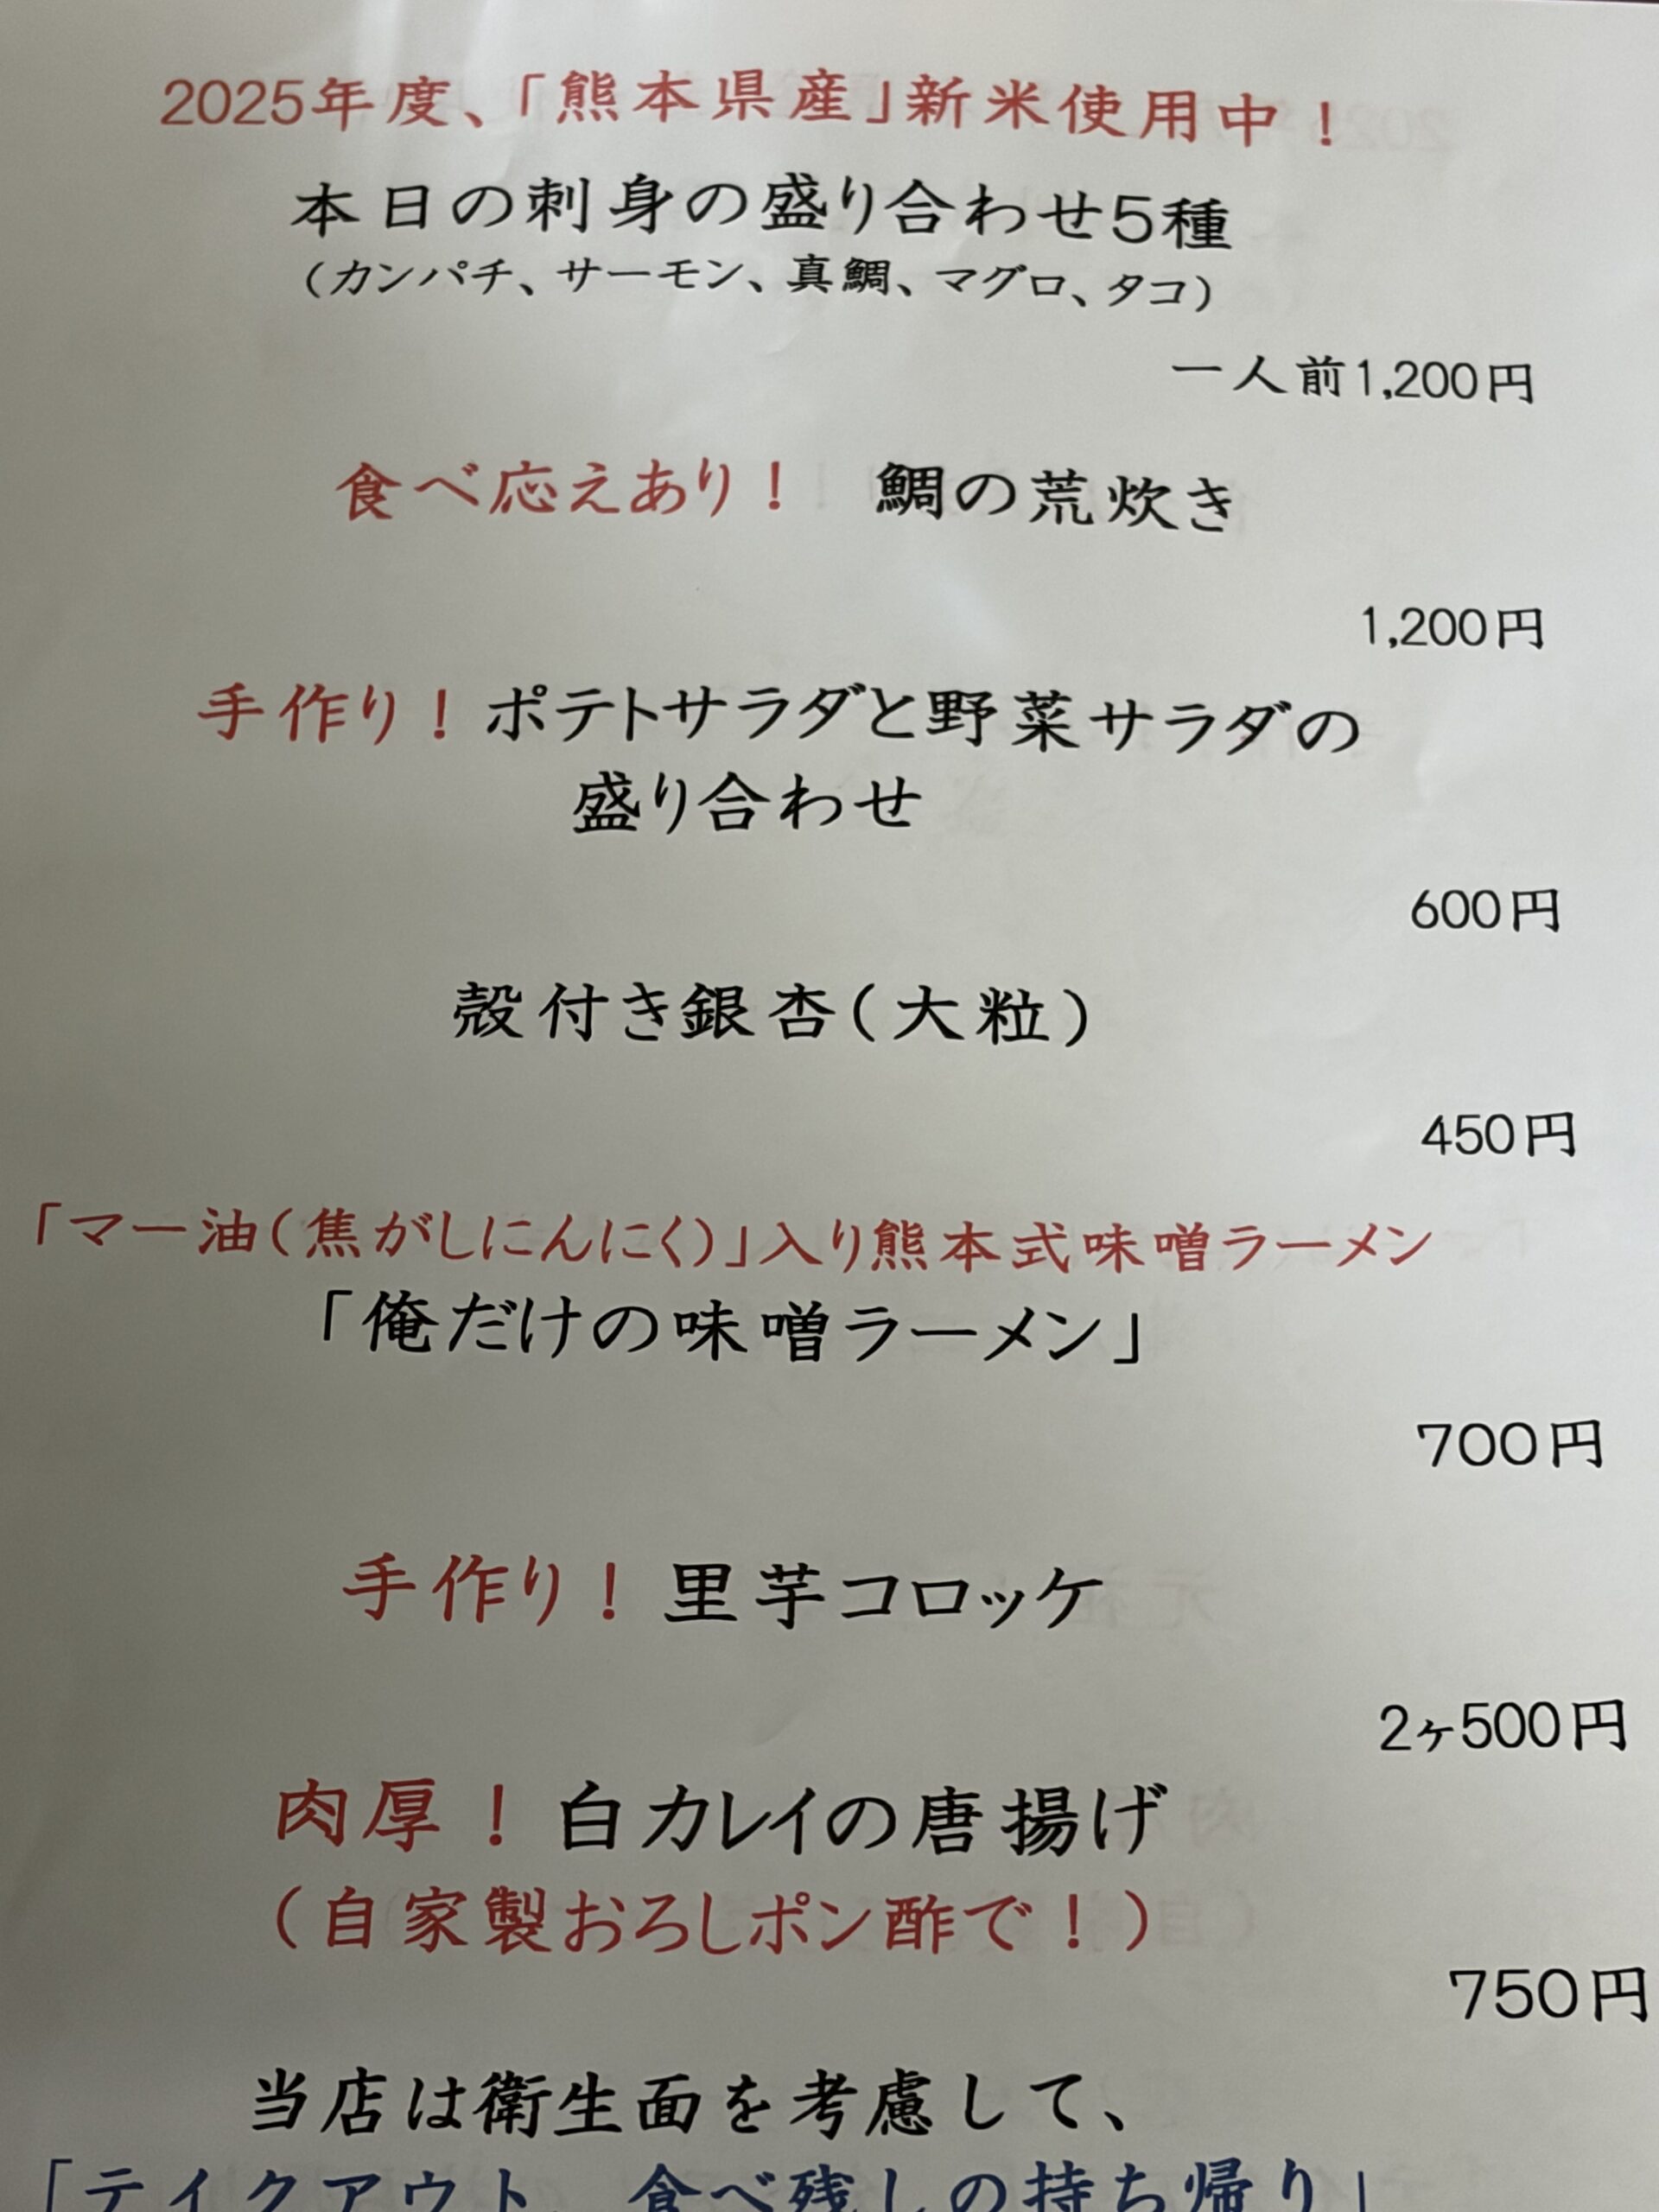 2025年度、「熊本県産」新米使用中！
本日の刺身の盛り合わせ5種
（カンパチ、サーモン、真鯛、マグロ、タコ）
一人前1,200円
食べ応えあり！　鯛の荒炊き
1,200円
手作り！ポテトサラダと野菜サラダの
盛り合わせ
600円
殻付き銀杏（大粒）
450円
「マー油（焦がしにんにく）」入り熊本式味噌ラーメン
「俺だけの味噌ラーメン」
700円
手作り！里芋コロッケ
2ヶ500円
肉厚！白カレイの唐揚げ
（自家製おろしポン酢で！）
750円
当店は衛生面を考慮して、
「テイクアウト、食べ残しの持ち帰り」